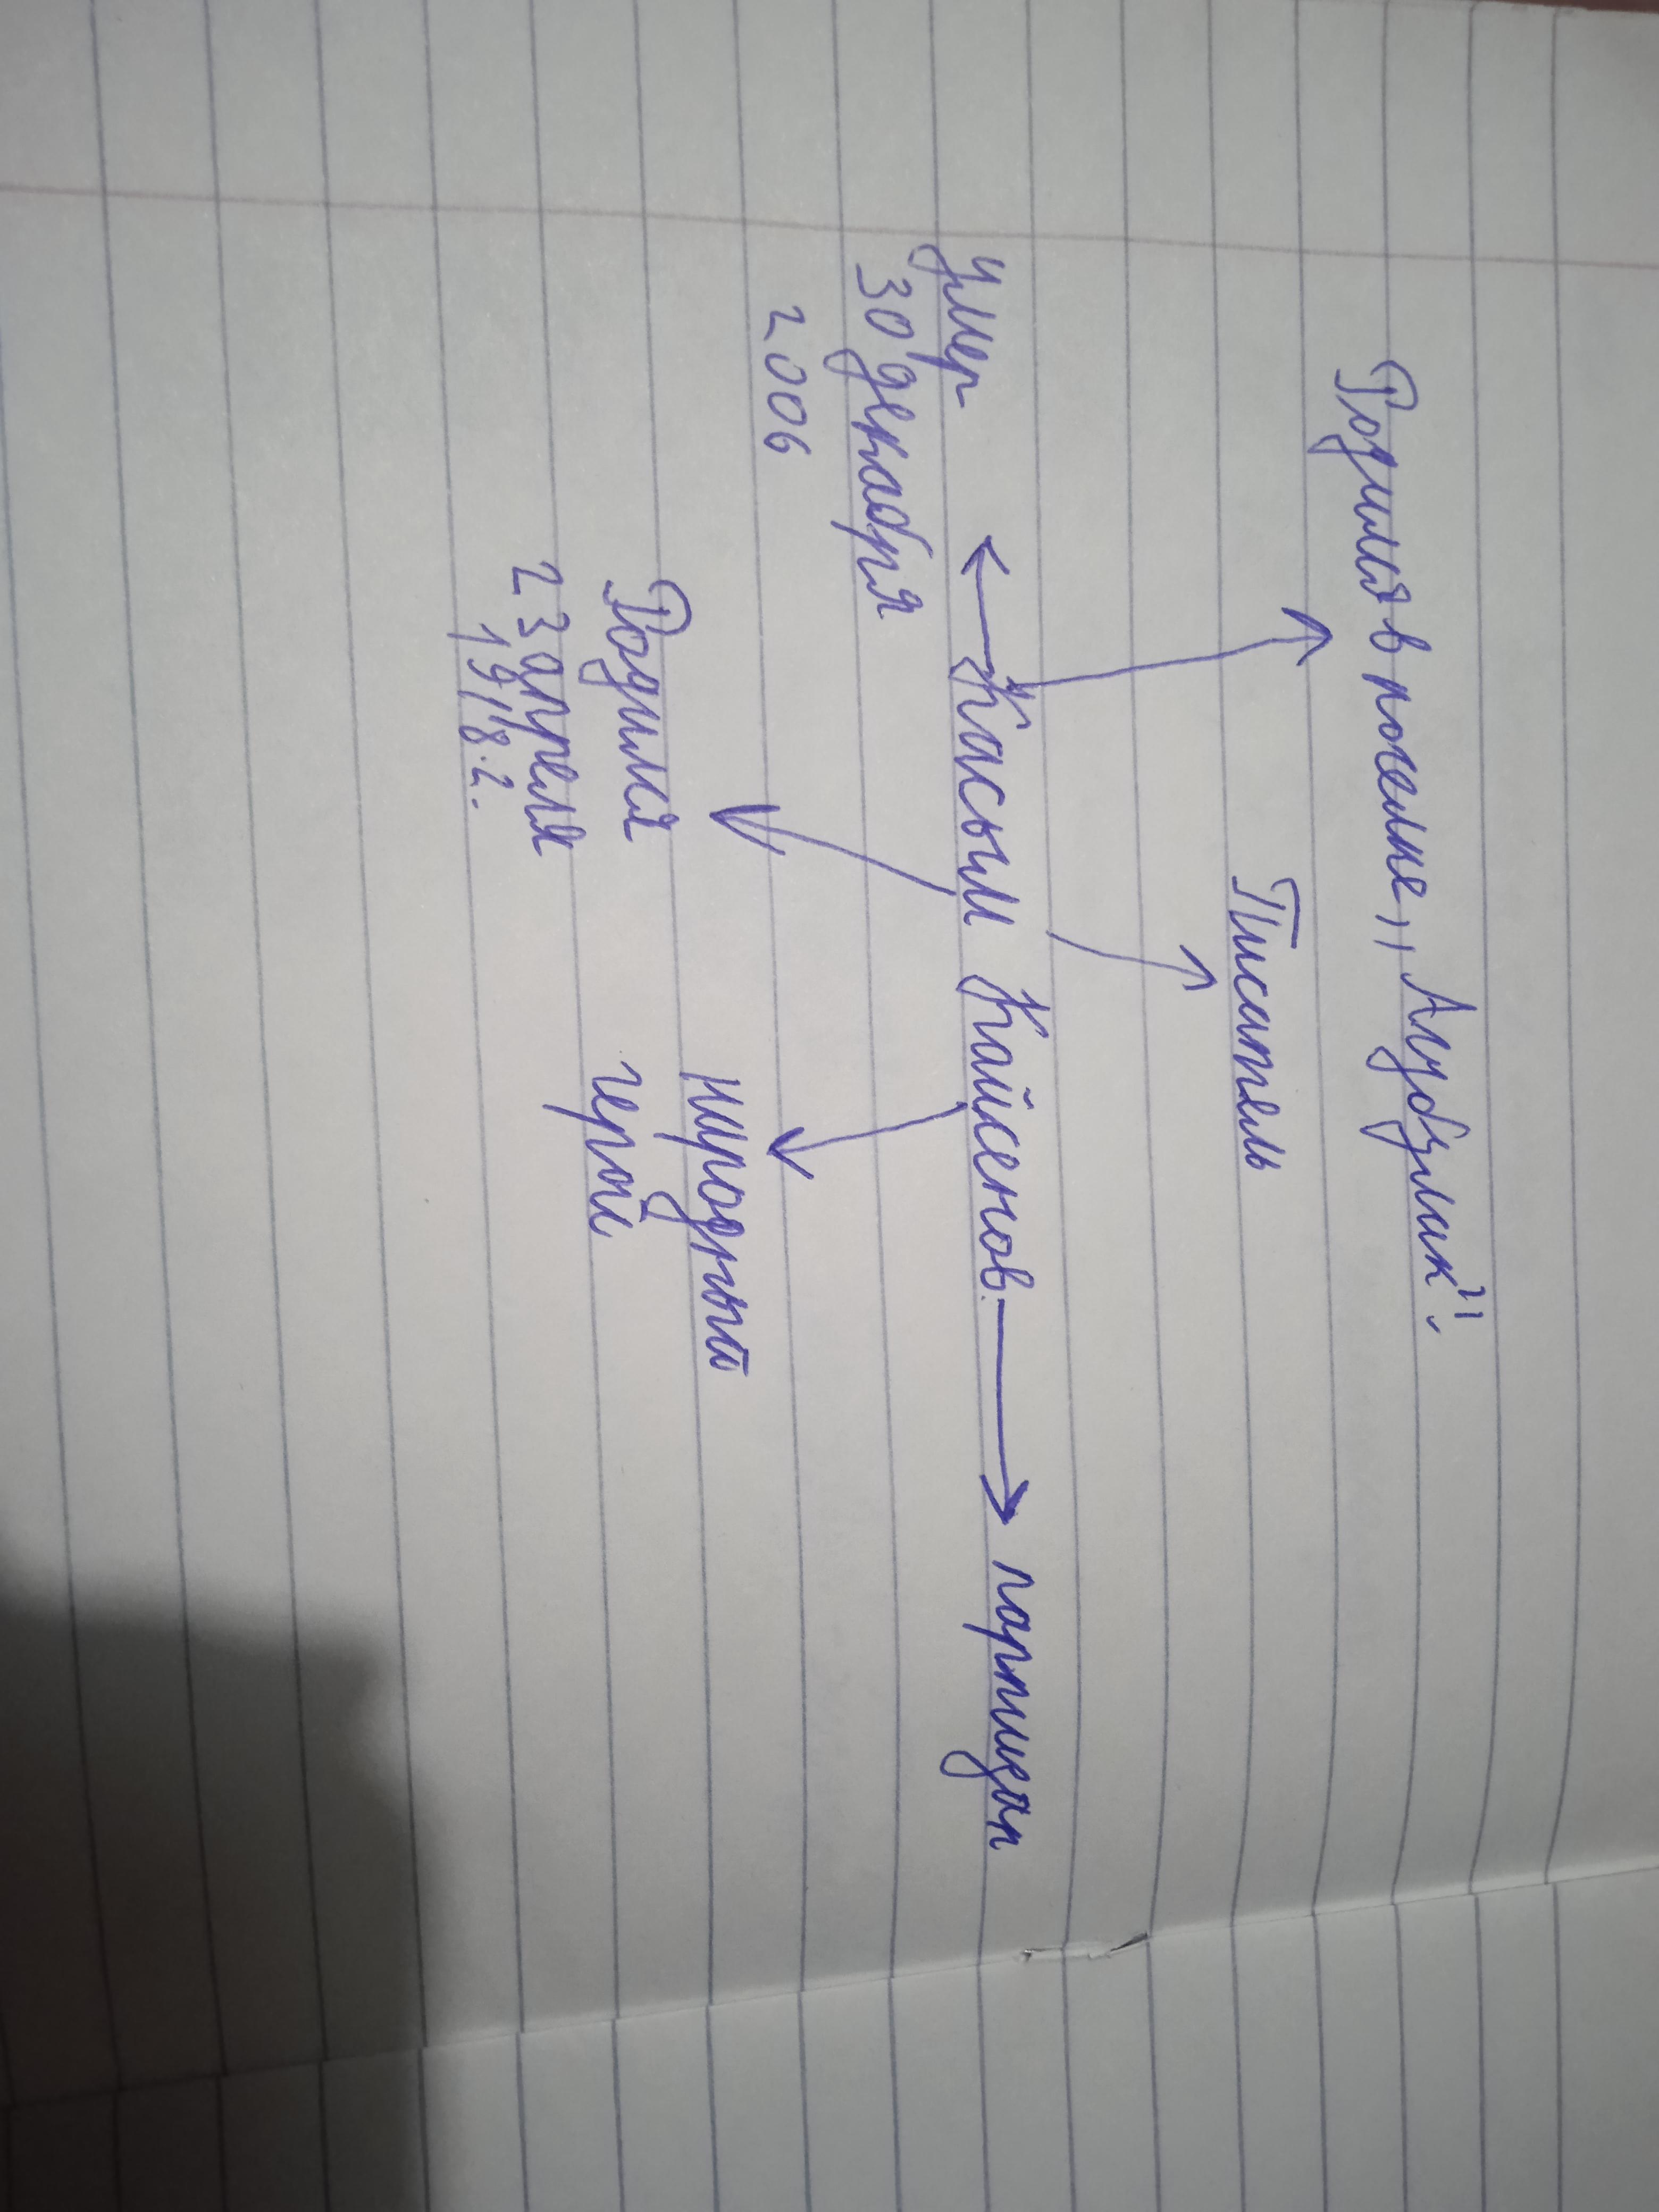 Родился в поселке ,, Асубулак".
Писатель
Касым Кайсенов.
партизан
умер
30 декабря
2006
Родился
23 апреля
1918 г.
народный
герой